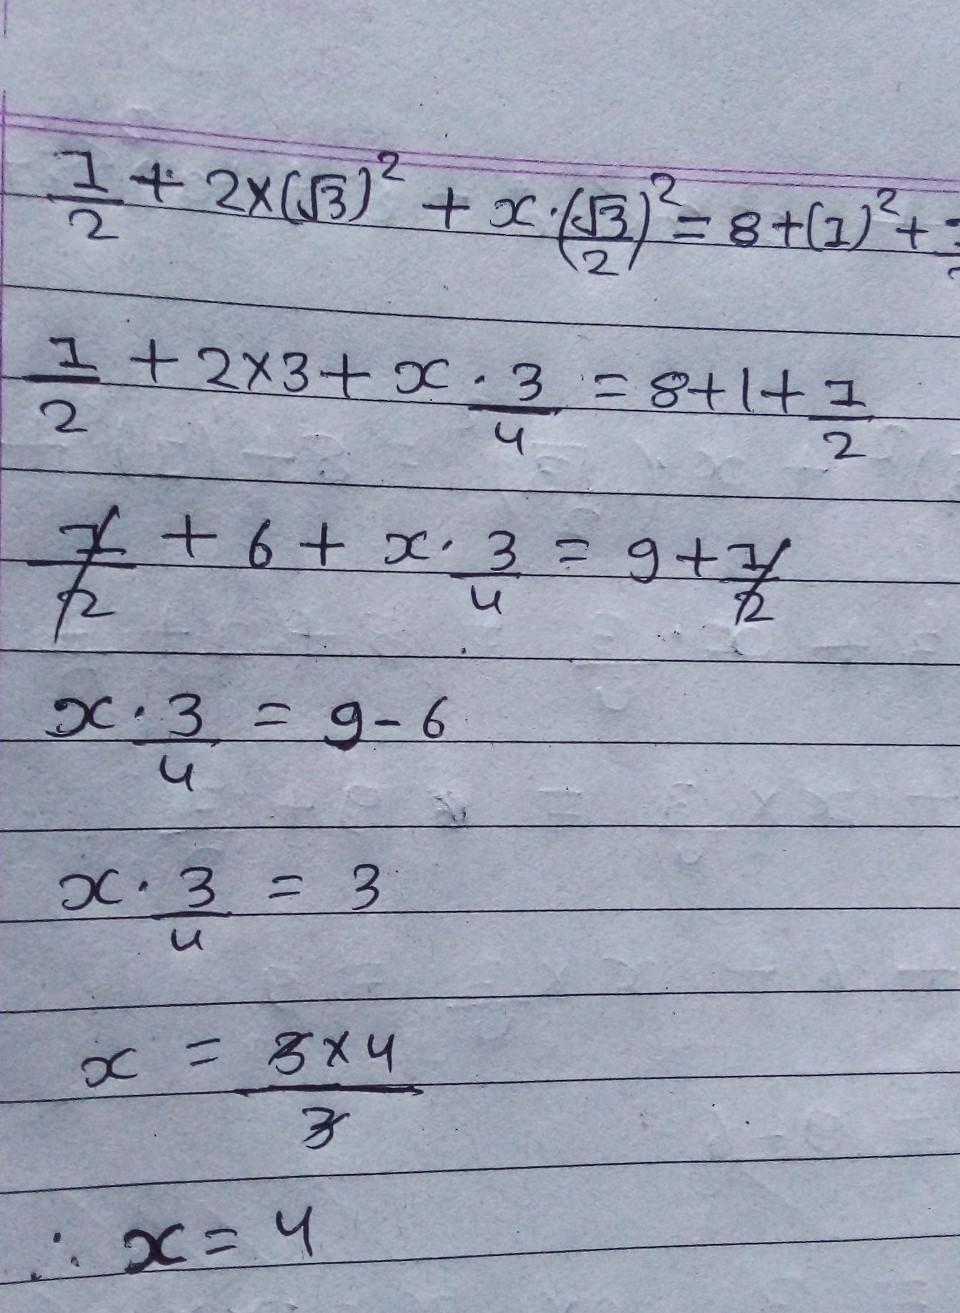 1/2 + 2×(√3)² + x·(√3/2)² = 8+(1)²+
1/2 + 2×3 + x·3/4 = 8+1+1/2
1/2 + 6 + x·3/4 = 9+1/2
x·3/4 = 9-6
x·3/4 = 3
x = 3×4/3
∴ x = 4